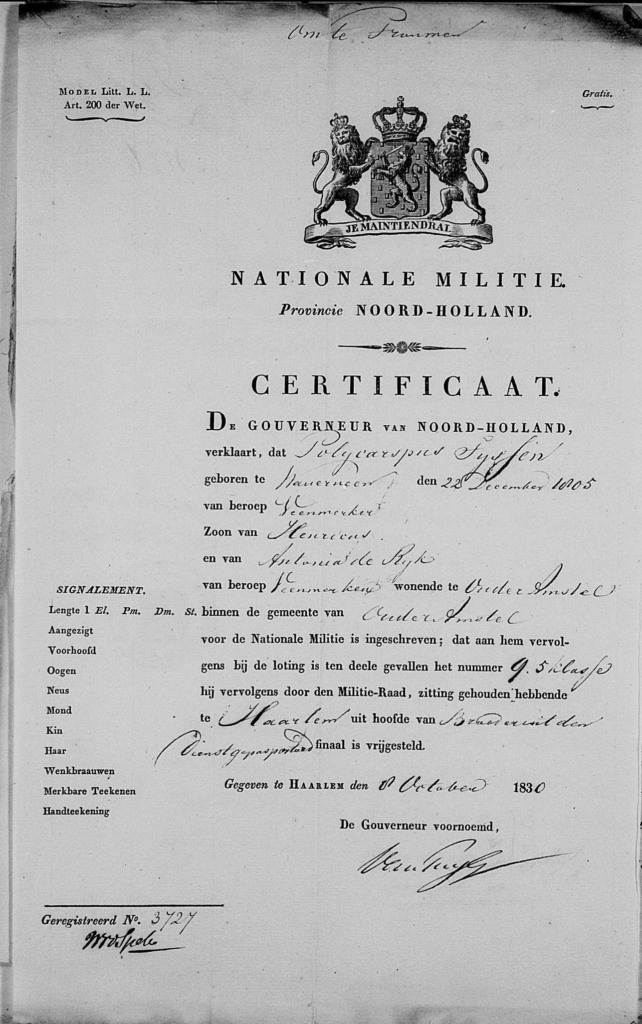 Om te Trouwen
MODEL Litt. L. L.
Art. 200 der Wet.
Gratis.
JE MAINTIENDRAI
NATIONALE MILITIE.
Provincie NOORD-HOLLAND.
CERTIFICAAT.
DE GOUVERNEUR VAN NOORD-HOLLAND,
verklaart, dat Polycarspus Fyssen
geboren te Waverveen den 22 December 1805
van beroep Veenwerker
Zoon van Henricus
en van Antonia de Ryk
van beroep Veenwerker wonende te Ouder Amstel
binnen de gemeente van Ouder Amstel
voor de Nationale Militie is ingeschreven; dat aan hem vervol-
gens bij de loting is ten deele gevallen het nummer 9. 5 klasse
hij vervolgens door den Militie-Raad, zitting gehouden hebbende
te Haarlem uit hoofde van Broeder uit den
Dienst gepasporteerd finaal is vrijgesteld.
Gegeven te HAARLEM den 8 October 1830
De Gouverneur voornoemd,
SIGNALEMENT.
Lengte 1 El. Pm. Dm. St.
Aangezigt
Voorhoofd
Oogen
Neus
Mond
Kin
Haar
Wenkbraauwen
Merkbare Teekenen
Handteekening
Geregistreerd No. 3727